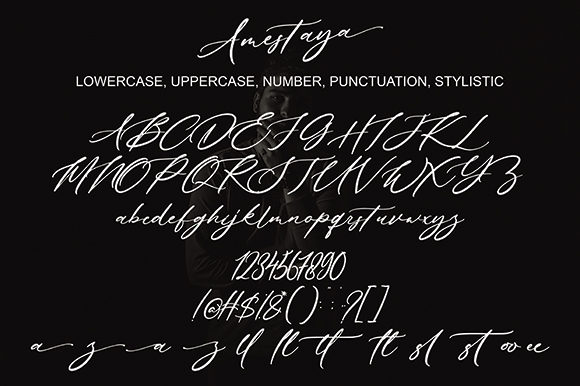 Amestaya
LOWERCASE, UPPERCASE, NUMBER, PUNCTUATION, STYLISTIC
ABCDEFGHIJKL
MNOPQRSTUVWXYZ
abcdefghijklmnopqrstuvwxyz
1234567890
!@#$%&*() : ; - ?[]
a a a ll ll tt tt sl st oo ee